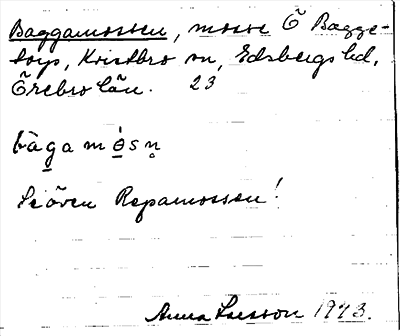 Baggamossen, mosse Ö Bagge-
torp, Kvistbro sn, Edsbergs hd,
Örebro län. 23
bàgam ȯ s n̥
Se även Repamossen!
Anna Larsson 1923.